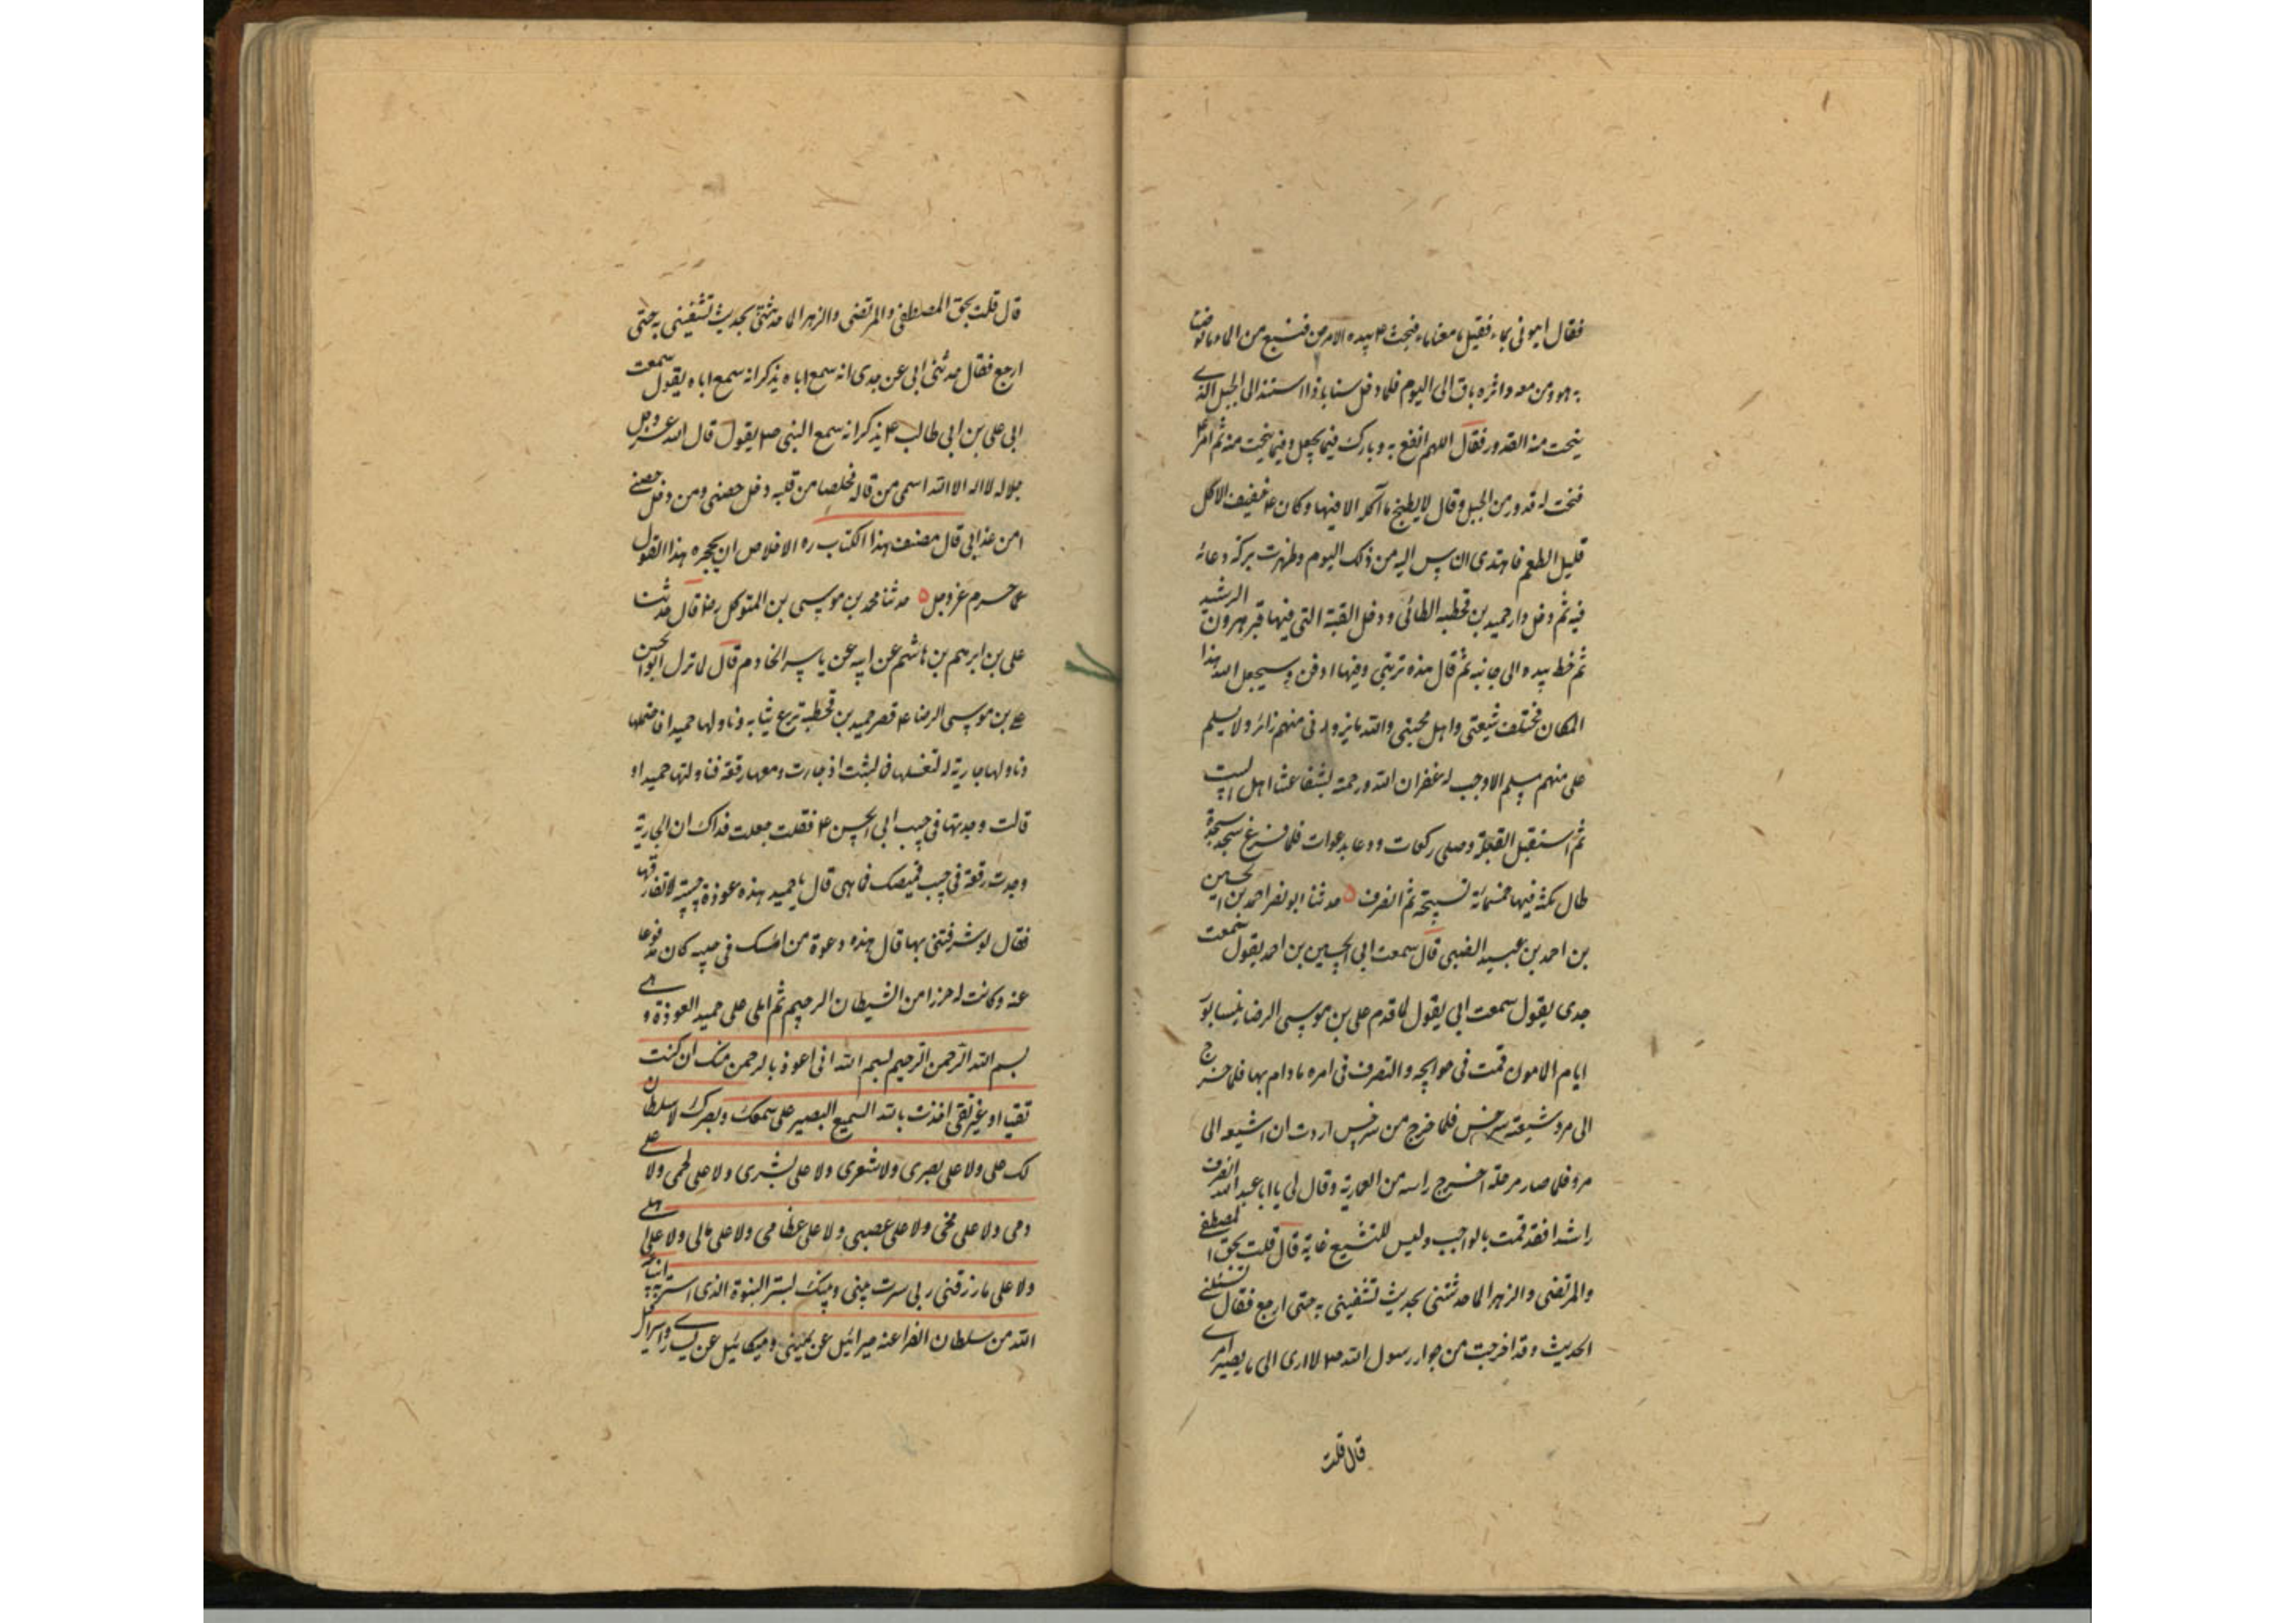 فقال ايتونى بماء فقيل ما معنا ماء فبحث ع بيده الارض فنبع من الماء ما توضأ
به هو و من معه و اثره باق الى اليوم فلما دخل سناباذ استند الى الجبل الذى
ينحت منه القدور فقال اللهم انفع به و بارك فيما يجعل و فيما ينحت منه ثم امر ع
فنحت له قدور من الجبل و قال لا يطبخ ما آكله الا فيها و كان ع خفيف الاكل
قليل الطعم فاهتدى الناس اليه من ذلك اليوم و ظهرت بركة دعائه
فيه ثم دخل دار حميد بن قحطبه الطائى و دخل القبة التى فيها قبر هرون الرشيد
ثم خط بيده الى جانبه ثم قال هذه تربتى و فيها ادفن و سيجعل الله هذا
المكان مختلف شيعتى و اهل محبتى و الله ما يزورنى منهم زائر و لا يسلم
على منهم مسلم الا وجب له غفران الله و رحمته بشفاعتنا اهل البيت
ثم استقبل القبلة و صلى ركعات و دعا بدعوات فلما فرغ سجد سجدة
طال مكثه فيها خمسمائة تسبيحة ثم انصرف ٥ حدثنا ابو نصر احمد بن الحسين
بن احمد بن عبيد الضبى قال سمعت ابى الحسين بن احمد يقول سمعت
جدى يقول سمعت ابى يقول لما قدم على بن موسى الرضا بنيسابور
ايام المامون قمت فى حوايجه و التصرف فى امره ما دام بها فلما خرج
الى مرو شيعته سرخس فلما خرج من سرخس اردت ان اشيعه الى
مرو فلما صار مرحلة اخرج راسه من العمارية و قال لى يا ابا عبد الله انصرف
راشدا فقد قمت بالواجب و ليس للتشيع غاية قال قلت بحق المصطفى
و المرتضى و الزهرا لما حدثتنى بحديث تشفينى به حتى ارجع فقال تسئلنى
الحديث و قد اخرجت من جوار رسول الله ص لا ادرى الى ما يصير امرى
قال قلت
قال قلت بحق المصطفى و المرتضى و الزهرا لما حدثتنى بحديث تشفينى به حتى
ارجع فقال حدثنى ابى عن جدى انه سمع اباه يذكر انه سمع اباه يقول سمعت
ابى على بن ابى طالب ع يذكر انه سمع النبى ص يقول قال الله عز و جل
جلاله لا اله الا الله اسمى من قاله مخلصا من قلبه دخل حصنى و من دخل حصنى
امن عذابى قال مصنف هذا الكتاب ره الاخلاص ان يحجره هذا القول
عما حرم عز و جل ٥ حدثنا محمد بن موسى بن المتوكل رض قال حدثنا
على بن ابرهيم بن هاشم عن ابيه عن ياسر الخادم قال لما نزل ابو الحسن
على بن موسى الرضا ع قصر حميد بن قحطبة نزع ثيابه و ناولها حميدا فاحتملها
و ناولها جارية له لتغسلها فما لبثت اذ جاءت و معها رقعة فناولتها حميدا و
قالت وجدتها فى جيب ابى الحسن ع فقلت جعلت فداك ان الجارية
وجدت رقعة فى جيب قميصك فما هى قال يا حميد هذه عوذة لا نفارقها
فقال لو شرفتنى بها قال هذه دعوة من امسك فى جيبه كان مدفوعا
عنه و كانت له حرزا من الشيطان الرجيم ثم املى على حميد العوذة و هى
بسم الله الرحمن الرحيم بسم الله انى اعوذ بالرحمن منك ان كنت
تقيا او غير تقى اخذت بالله السميع البصير على سمعك و بصرك لا سلطان
لك على و لا على بصرى و لا شعرى و لا على بشرى و لا على لحمى و لا على
دمى و لا على مخى و لا على عصبى و لا على عظامى و لا على مالى و لا على اهلى
و لا على ما رزقنى ربى سترت بينى و بينك بستر النبوة الذى استتر به انبياء
الله من سلطان الفراعنه جبرائيل عن يمينى و ميكائيل عن يسارى و اسرافيل